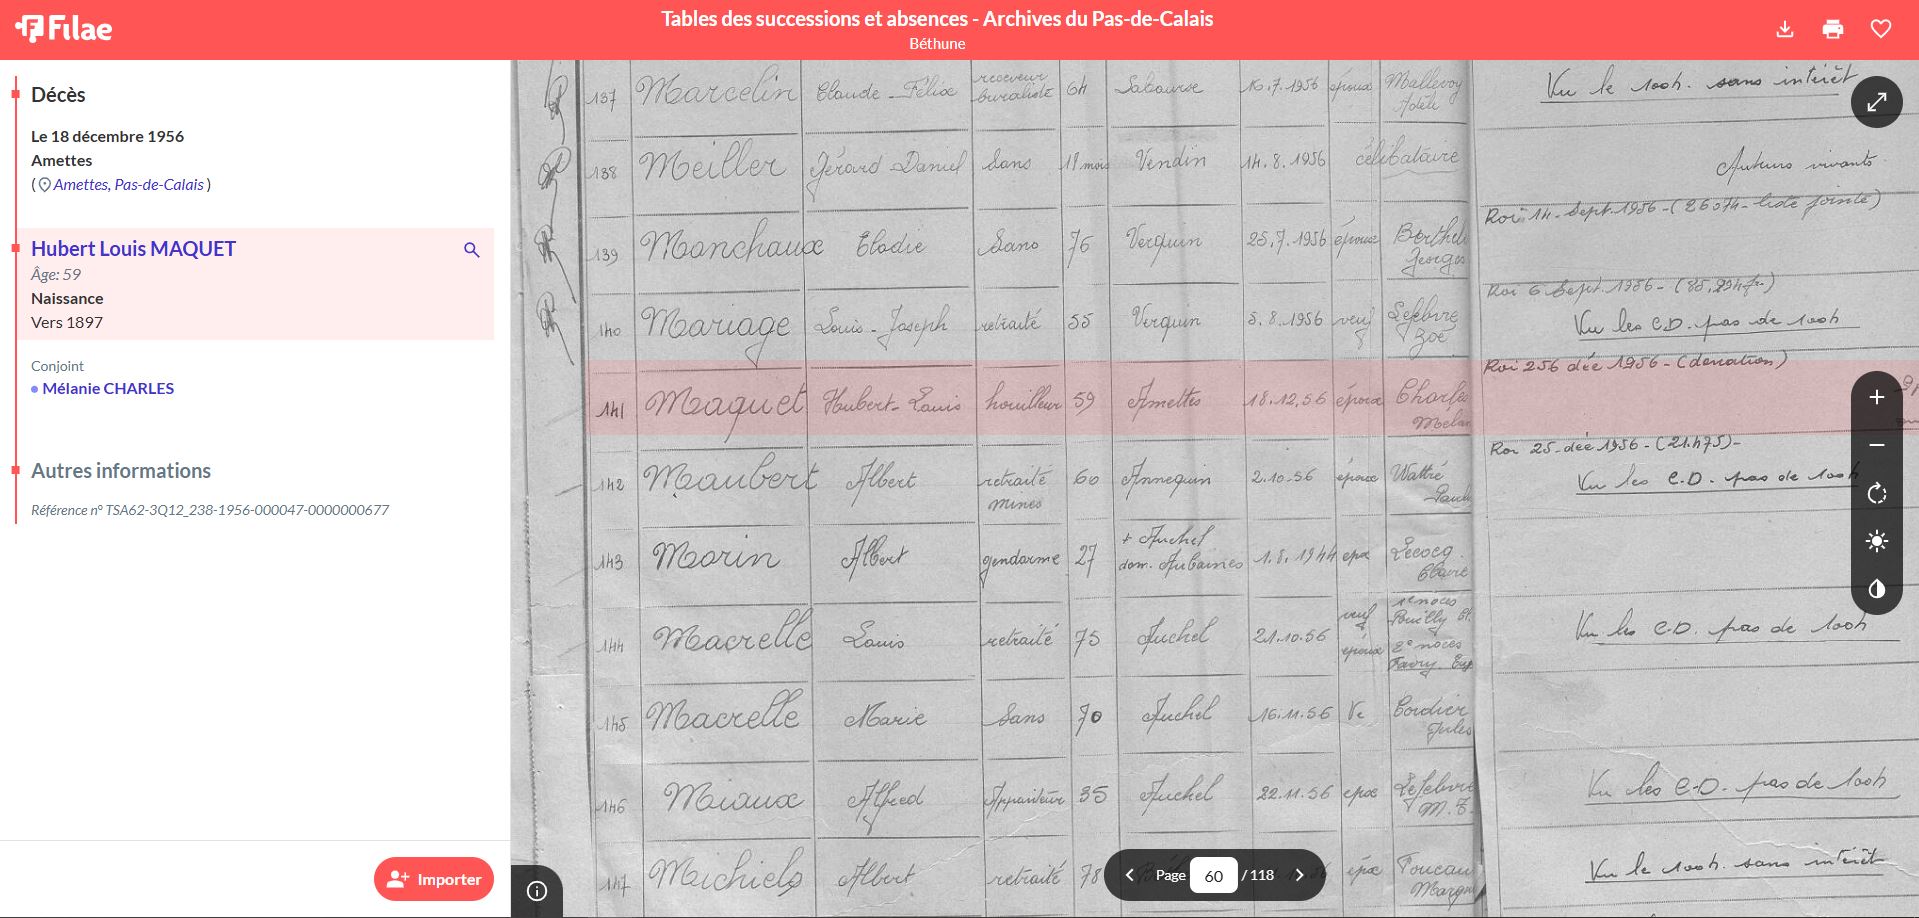 Filae
Tables des successions et absences - Archives du Pas-de-Calais
Béthune
Décès
Le 18 décembre 1956
Amettes
( Amettes, Pas-de-Calais )
Hubert Louis MAQUET
Âge: 59
Naissance
Vers 1897
Conjoint
Mélanie CHARLES
Autres informations
Référence n° TSA62-3Q12_238-1956-000047-0000000677
Importer
137 Marcelin Claude - Félix receveur buraliste 64 Labourse 16.7.1956 époux Mallevoy Adèle
Vu le 100h. sans intérêt
138 Meiller Gérard Daniel Sans 18 mois Vendin 14.8.1956 célibataire
Auteurs vivants
Roi 14 Sept. 1956 - (26074 - liste jointe)
139 Manchaux Elodie Sans 76 Verquin 25.7.1956 épouse Berthel Georges
Roi 6 Sept. 1956 -
140 Mariage Louis - Joseph retraité 55 Verquin 5.8.1956 veuf Lefebvre Zoé
Vu les C.D. pas de 100h
Roi 256 déc 1956 - (donation)
141 Maquet Hubert - Louis houilleur 59 Amettes 18.12.56 époux Charles Melan
Roi 25 déc 1956 - (21.475) -
142 Maubert Albert retraité mines 60 Annequin 2.10.56 époux Wattré
Vu les C.D. pas de 100h
143 Morin Albert gendarme 27 + Auchel dom. Aubaines 1.8.1944 epx Lecocq Claire
144 Macrelle Louis retraité 75 Auchel 21.10.56 veuf époux 1e noces Pouilly 2e noces Favry. Eug
Vu les C.D. pas de 100h
145 Macrelle Marie Sans 70 Auchel 16.11.56 Ve Cordier Jules
146 Miaux Alfred Appariteur 35 Auchel 22.11.56 epx Lefebvre M.T.
Vu les C.D. pas de 100h
147 Michiels Albert retraité 78 épx Foucau Margu
Vu le 100h. sans intérêt
Page 60 / 118